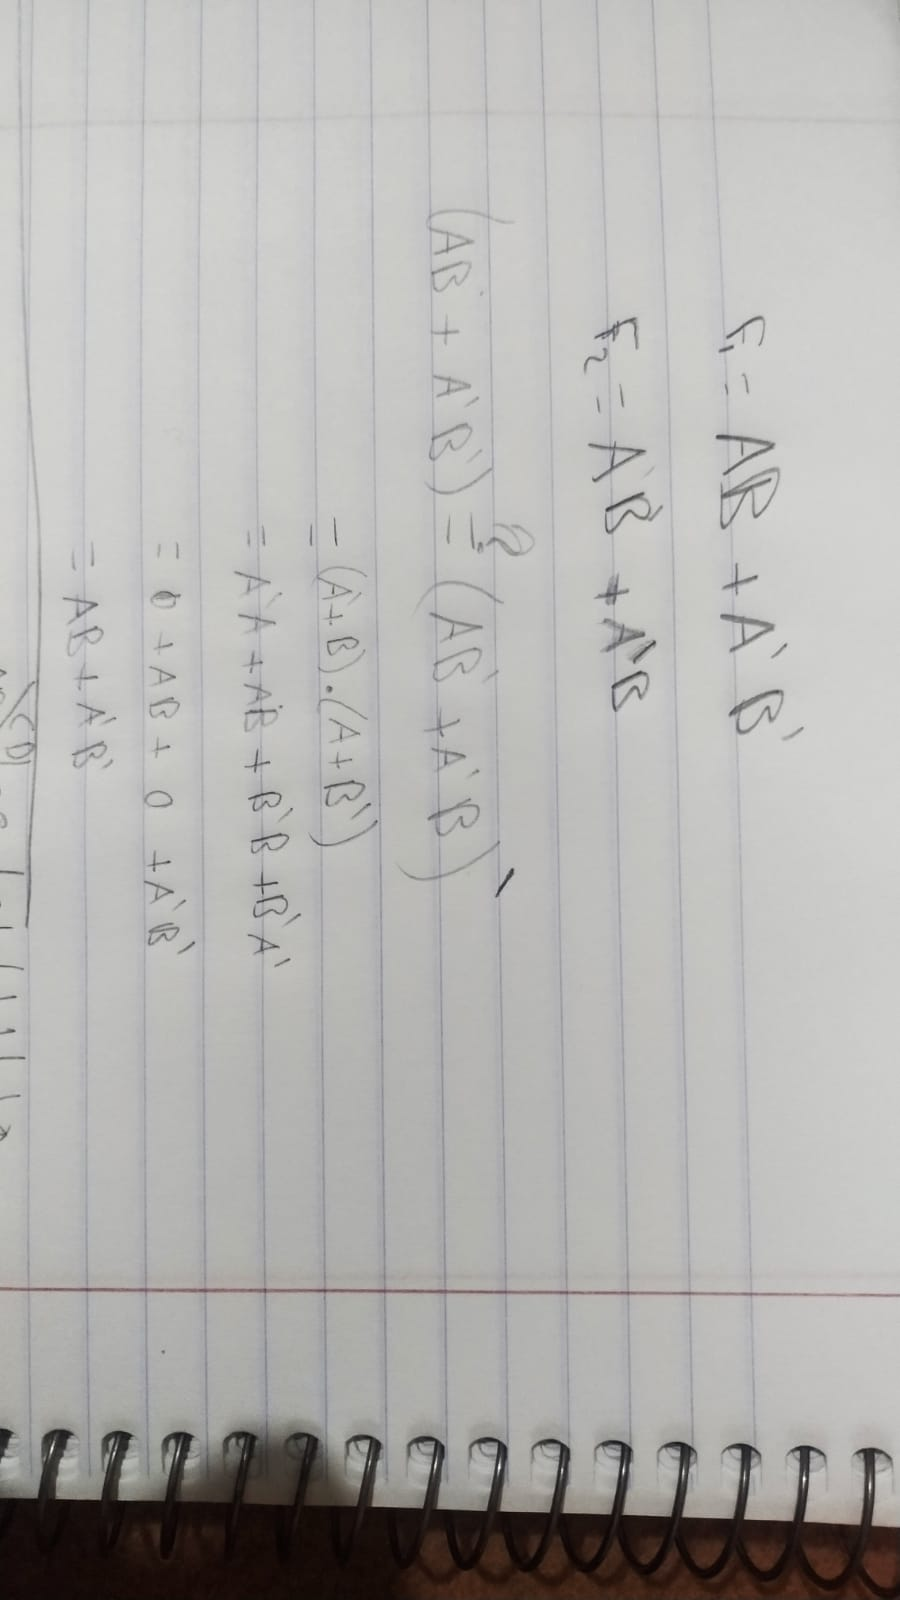 F₁ = AB + A'B'
F₂ = AB' + A'B
(AB + A'B') =? (AB' + A'B)'
= (A'+B).(A+B')
= A'A + AB + B'B + B'A'
= 0 + AB + 0 + A'B'
= AB + A'B'